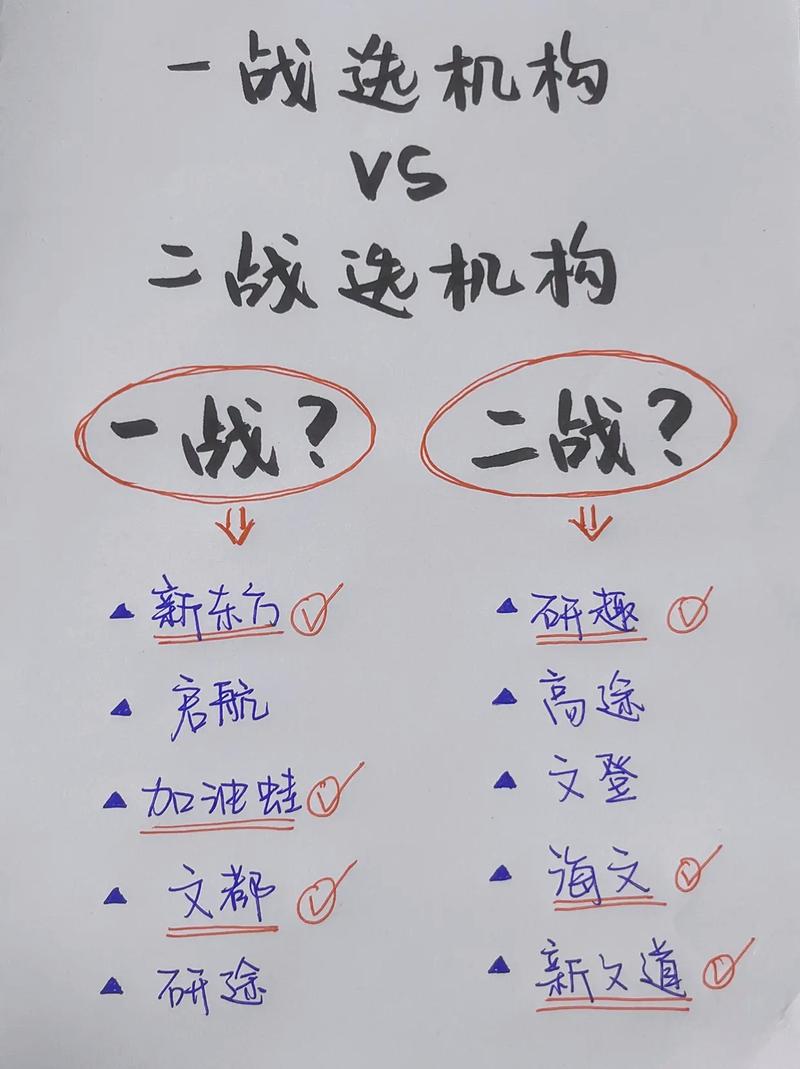 一战选机构
VS
二战选机构
一战?
新东方
启航
加油蛙
文都
研途
二战?
研趣
高途
文登
海文
新文道